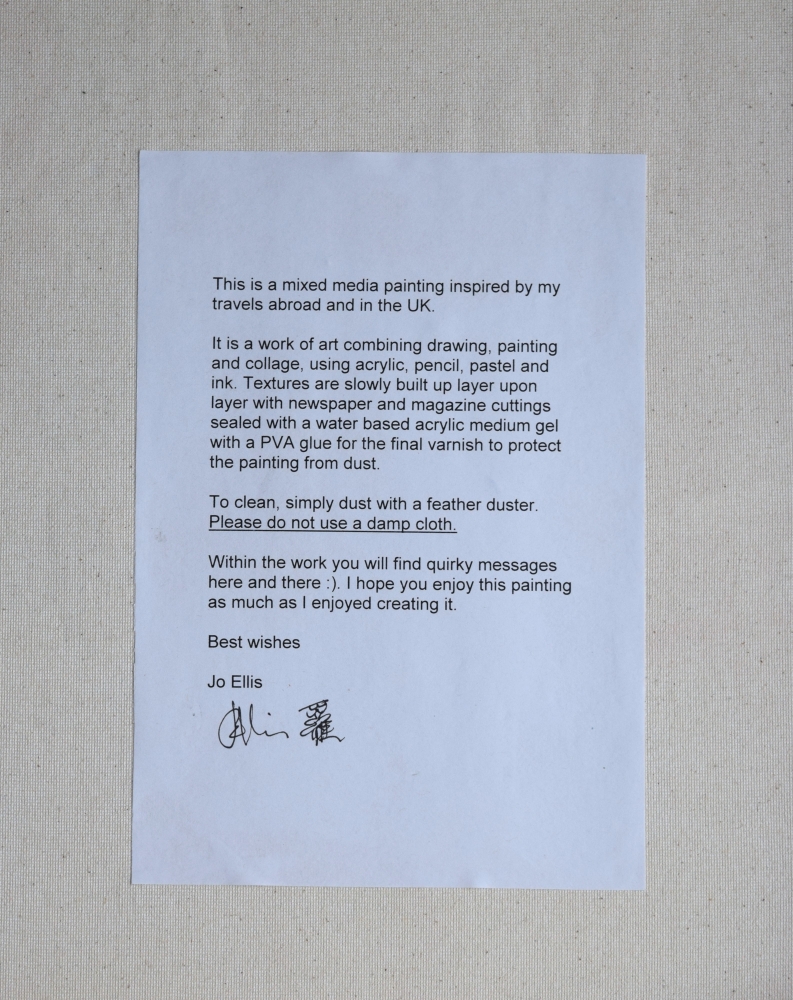 This is a mixed media painting inspired by my
travels abroad and in the UK.
It is a work of art combining drawing, painting
and collage, using acrylic, pencil, pastel and
ink. Textures are slowly built up layer upon
layer with newspaper and magazine cuttings
sealed with a water based acrylic medium gel
with a PVA glue for the final varnish to protect
the painting from dust.
To clean, simply dust with a feather duster.
Please do not use a damp cloth.
Within the work you will find quirky messages
here and there :). I hope you enjoy this painting
as much as I enjoyed creating it.
Best wishes
Jo Ellis
羅